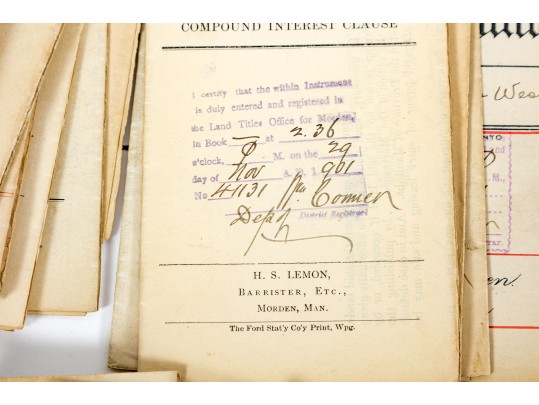 COMPOUND INTEREST CLAUSE
I certify that the within Instrument
is duly entered and registered in
the Land Titles Office for Morden,
in Book — at 2.36
o'clock, P M. on the 29
day of Nov A. D. 1901
No 41131
Depy District Registrar
H. S. LEMON,
BARRISTER, ETC.,
MORDEN, MAN.
The Ford Stat'y Co'y Print, Wpg.